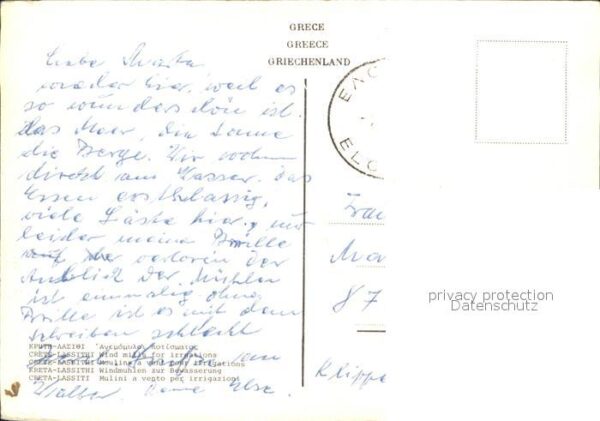 GRECE
GREECE
GRIECHENLAND
Liebe
wieder hier, weil es
so wunderschön ist.
das Meer, die Sonne
die Berge. Wir wohnen
direkt am Wasser. das
Essen erstklassig,
viele Gäste hier, nur
leider meine Brille
verloren der
Anblick der Mühlen
ist einmalig ohne
Brille ist es mit dem
schreiben schlecht
ΚΡΗΤΗ-ΛΑΣΙΘΙ Ἀνεμόμυλοι ποτίσματος
CRETA-LASSITHI Wind mills for irrigations
KRETA-LASSITHI Windmuhlen zur Bewasserung
CRETA-LASSITI Mulini a vento per irrigazioni
von
Walter. Deine Else.
ΕΛΟ
ELO
Frau
Ma
87
Klippe
privacy protection
Datenschutz